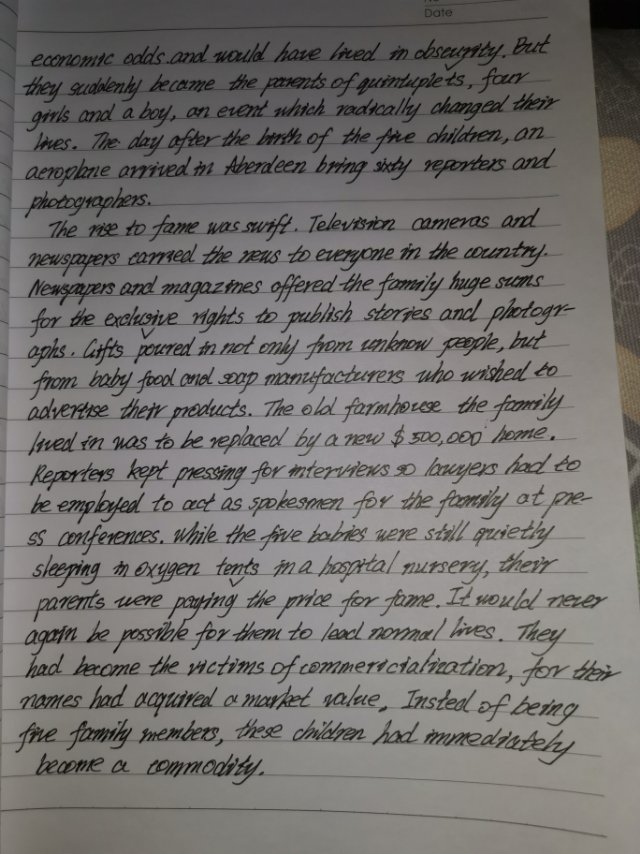 Date
economic odds and would have lived in obscurity. But
they suddenly became the parents of quintuplets, four
girls and a boy, an event which radically changed their
lives. The day after the birth of the five children, an
aeroplane arrived in Aberdeen bring sixty reporters and
photographers.
The rise to fame was swift. Television cameras and
newspapers carried the news to everyone in the country.
Newspapers and magazines offered the family huge sums
for the exclusive rights to publish stories and photogr-
aphs. Gifts poured in not only from unknow people, but
from baby food and soap manufacturers who wished to
advertise their products. The old farmhouse the family
lived in was to be replaced by a new $ 500,000 home.
Reporters kept pressing for interviews so lawyers had to
be employed to act as spokesmen for the family at pre-
ss conferences. While the five babies were still quietly
sleeping in oxygen tents in a hospital nursery, their
parents were paying the price for fame. It would never
again be possible for them to lead normal lives. They
had become the victims of commericialization, for their
names had acquired a market value. Insted of being
five family members, these children had immediately
become a commodity.